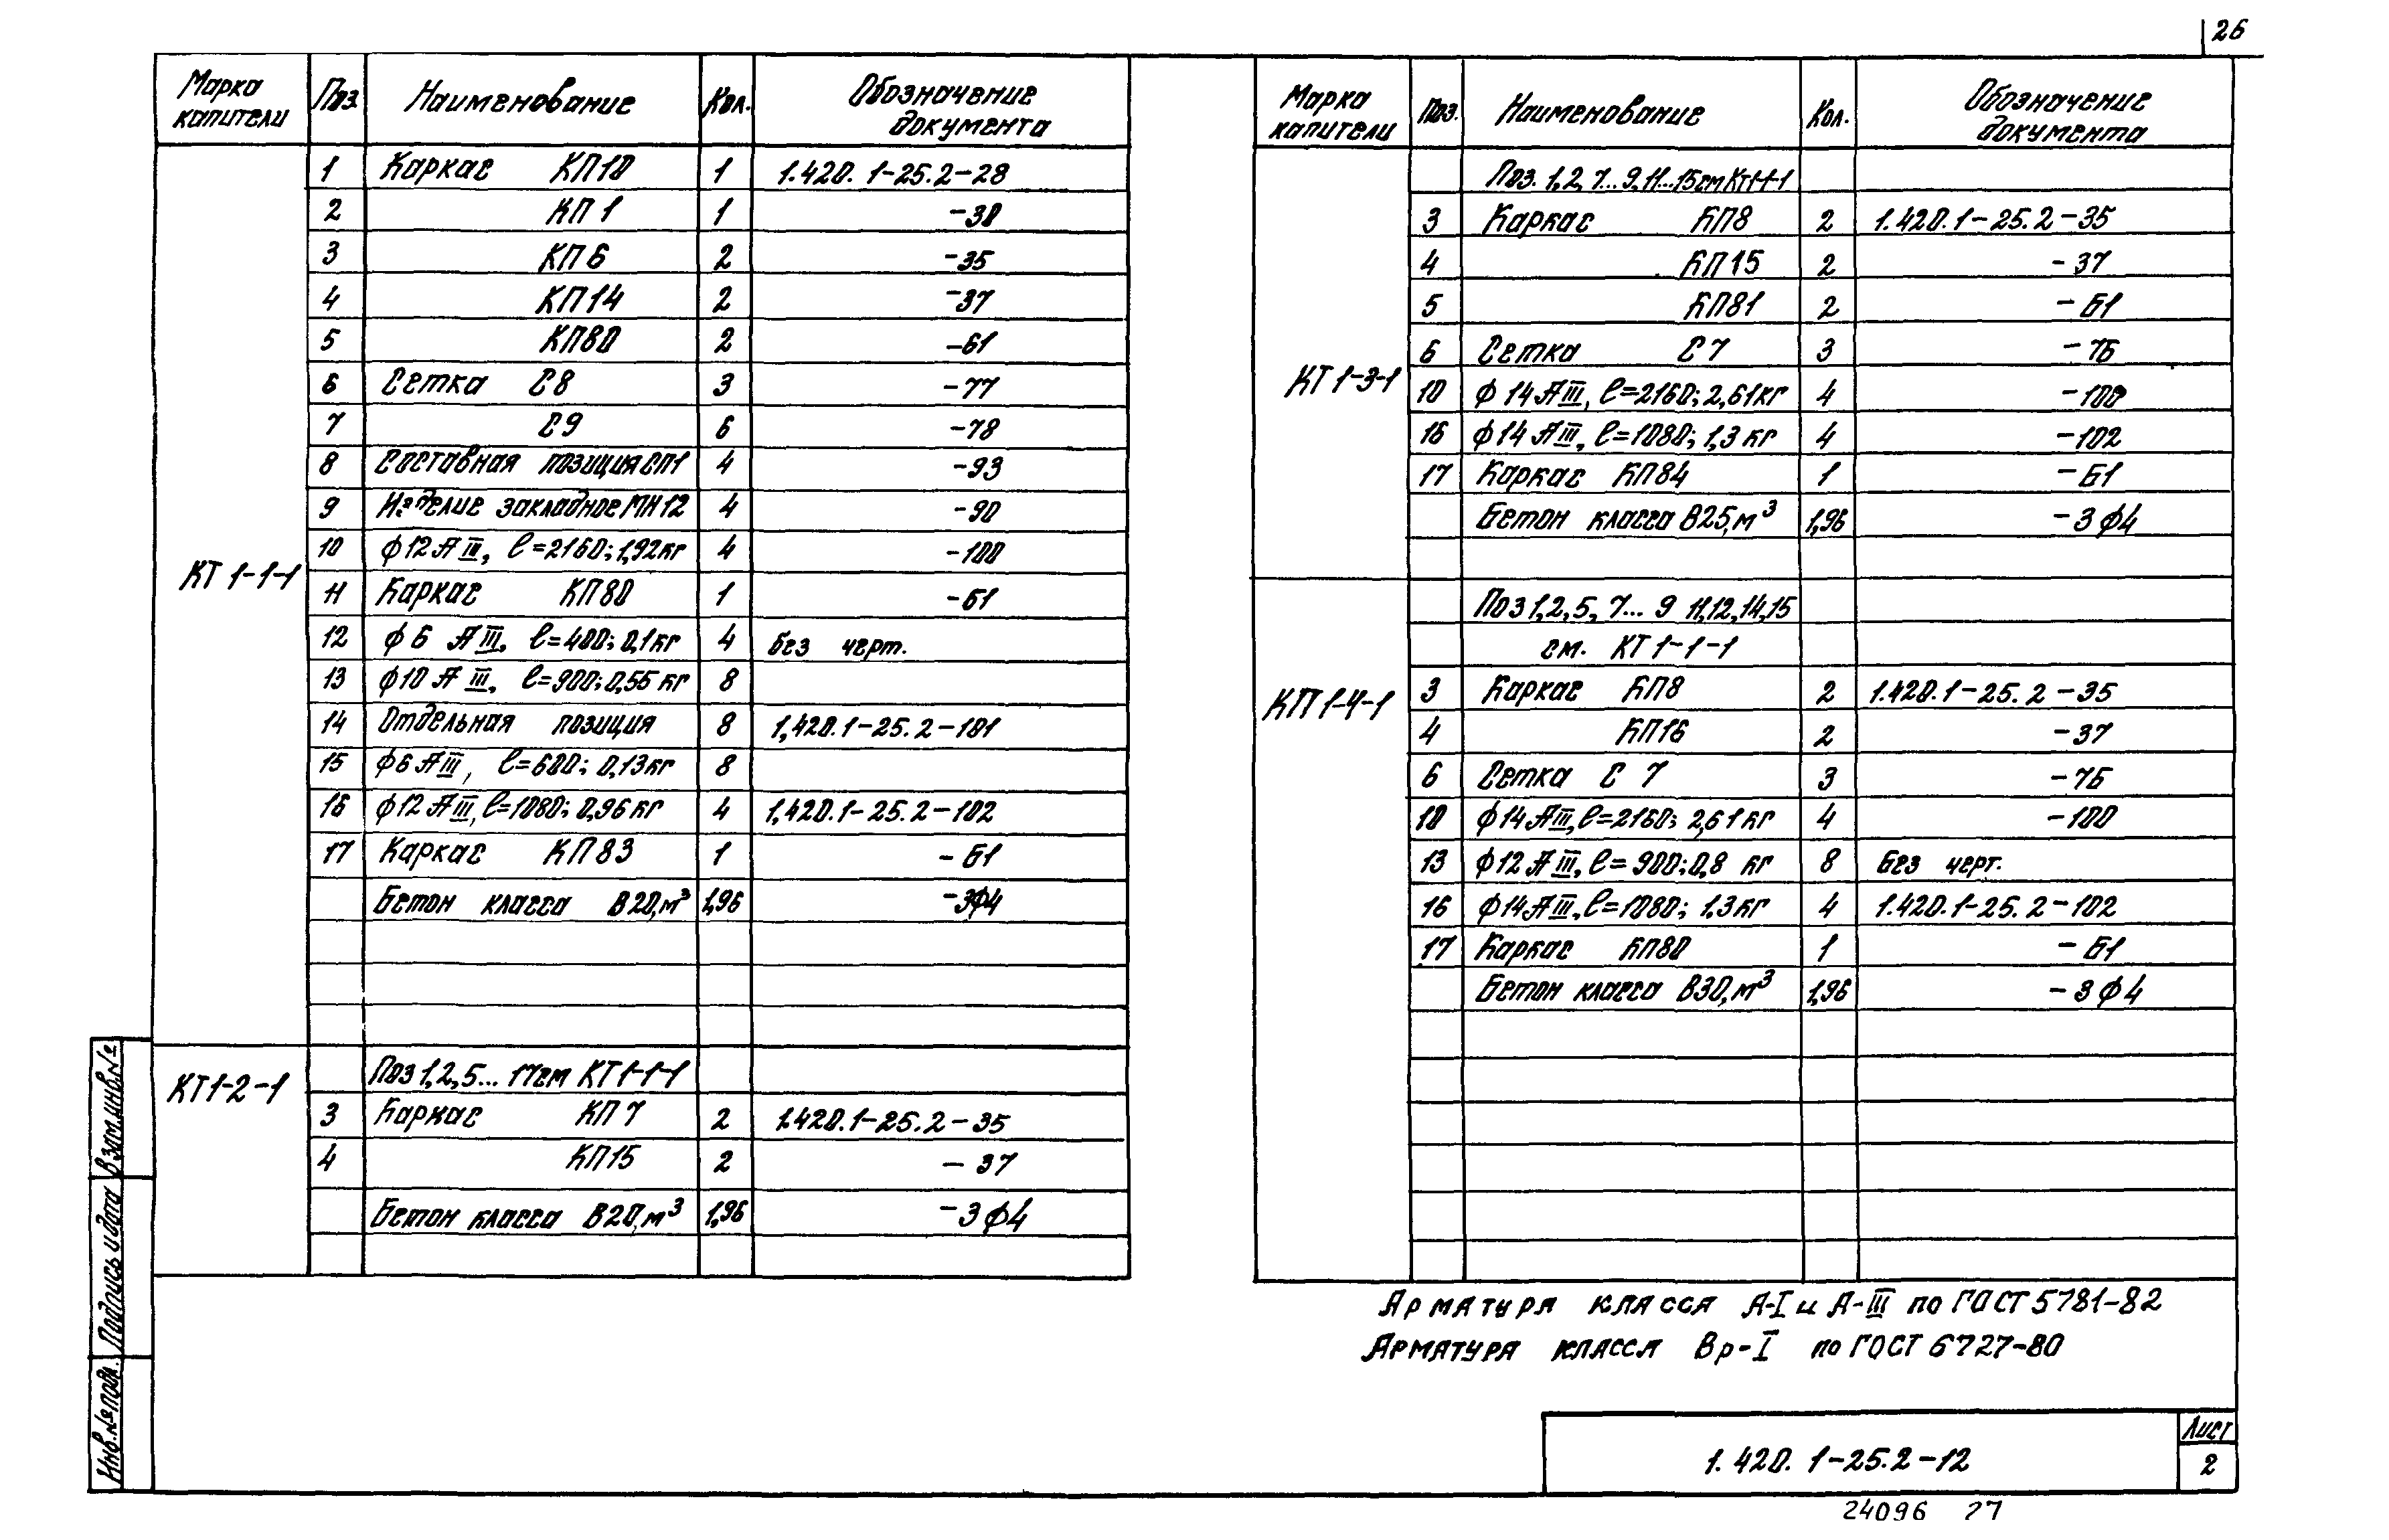 26
Марка капители Поз. Наименование Кол. Обозначение документа
КТ 1-1-1
1 Каркас КП10 1 1.420.1-25.2-28
2 КП 1 1 -30
3 КП 6 2 -35
4 КП14 2 -37
5 КП80 2 -61
6 Сетка С8 3 -77
7 С9 6 -78
8 Составная позиция СП1 4 -93
9 Изделие закладное МН12 4 -90
10 ϕ12 А III, ℓ=2160; 1,92кг 4 -100
11 Каркас КП80 1 -61
12 ϕ 6 А III, ℓ=400; 0,1кг 4 без черт.
13 ϕ10 А III, ℓ=900; 0,56 кг 8
14 Отдельная позиция 8 1,420.1-25.2-101
15 ϕ6 А III, ℓ=600; 0,13кг 8
16 ϕ12 А III, ℓ=1080; 0,96 кг 4 1,420.1-25.2-102
17 Каркас КП83 1 -61
Бетон класса В20,м³ 1,96 -3ϕ4
КТ1-2-1
Поз 1,2,5... 17см КТ1-1-1
3 Каркас КП 7 2 1.420.1-25.2-35
4 КП15 2 -37
Бетон класса В20,м³ 1,96 -3ϕ4
Марка капители Поз. Наименование Кол. Обозначение документа
КТ 1-3-1
Поз. 1,2, 7...9,11...15см КТ1-1-1
3 Каркас КП8 2 1.420.1-25.2-35
4 КП15 2 -37
5 КП81 2 -61
6 Сетка С 7 3 -76
10 ϕ 14 А III, ℓ=2160; 2,61кг 4 -100
16 ϕ14 А III, ℓ=1080; 1,3 кг 4 -102
17 Каркас КП84 1 -61
Бетон класса В25,м³ 1,96 -3ϕ4
КП 1-4-1
Поз 1,2,5, 7... 9 11,12,14,15
см. КТ 1-1-1
3 Каркас КП8 2 1.420.1-25.2-35
4 КП16 2 -37
6 Сетка С 7 3 -76
10 ϕ14 А III, ℓ=2160; 2,61 кг 4 -100
13 ϕ12 А III, ℓ=900; 0,8 кг 8 без черт.
16 ϕ14 А III, ℓ=1080; 1.3кг 4 1.420.1-25.2-102
17 Каркас КП80 1 -61
Бетон класса В30,м³ 1,96 -3ϕ4
Арматура класса А-I и А-III по ГОСТ 5781-82
Арматура класса Вр-I по ГОСТ 6727-80
Взам.инв.№
Подпись и дата
Инв.№ подл.
1.420.1-25.2-12
Лист
2
24096 27